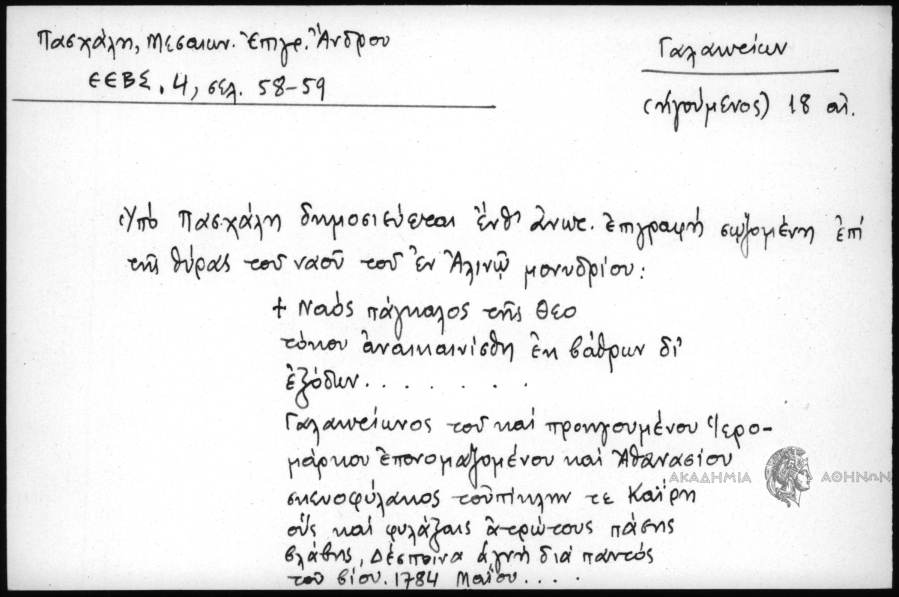 Πασχάλη, Μεσαιων. Ἐπιγρ. Ἄνδρου
ΕΕΒΣ. 4, σελ. 58-59
Γαλακτίων
(ἡγούμενος) 18 αἰ.
Ὑπό Πασχάλη δημοσιεύεται ἔνθ' ἀνωτ. ἐπιγραφή σῳζομένη ἐπί
τῆς θύρας τοῦ ναοῦ τοῦ ἐν Ἀλινῷ μονυδρίου:
+ Ναός πάγκαλος τῆς Θεο
τόκου ἀνακαινίσθη ἐκ βάθρων δι'
ἐξόδων . . . . . . .
Γαλακτίωνος τοῦ καί προηγουμένου Ἱερο-
μάρκου ἐπονομαζομένου καί Ἀθανασίου
σκευοφύλακος τοὐπίκλην τε Καΐρη
οὕς καί φυλάξαις ἀτρώτους πάσης
βλάβης, Δέσποινα ἁγνή διά παντός
τοῦ βίου. 1784 Μαΐου . . . .
ΑΚΑΔΗΜΙΑ ΑΘΗΝΩΝ